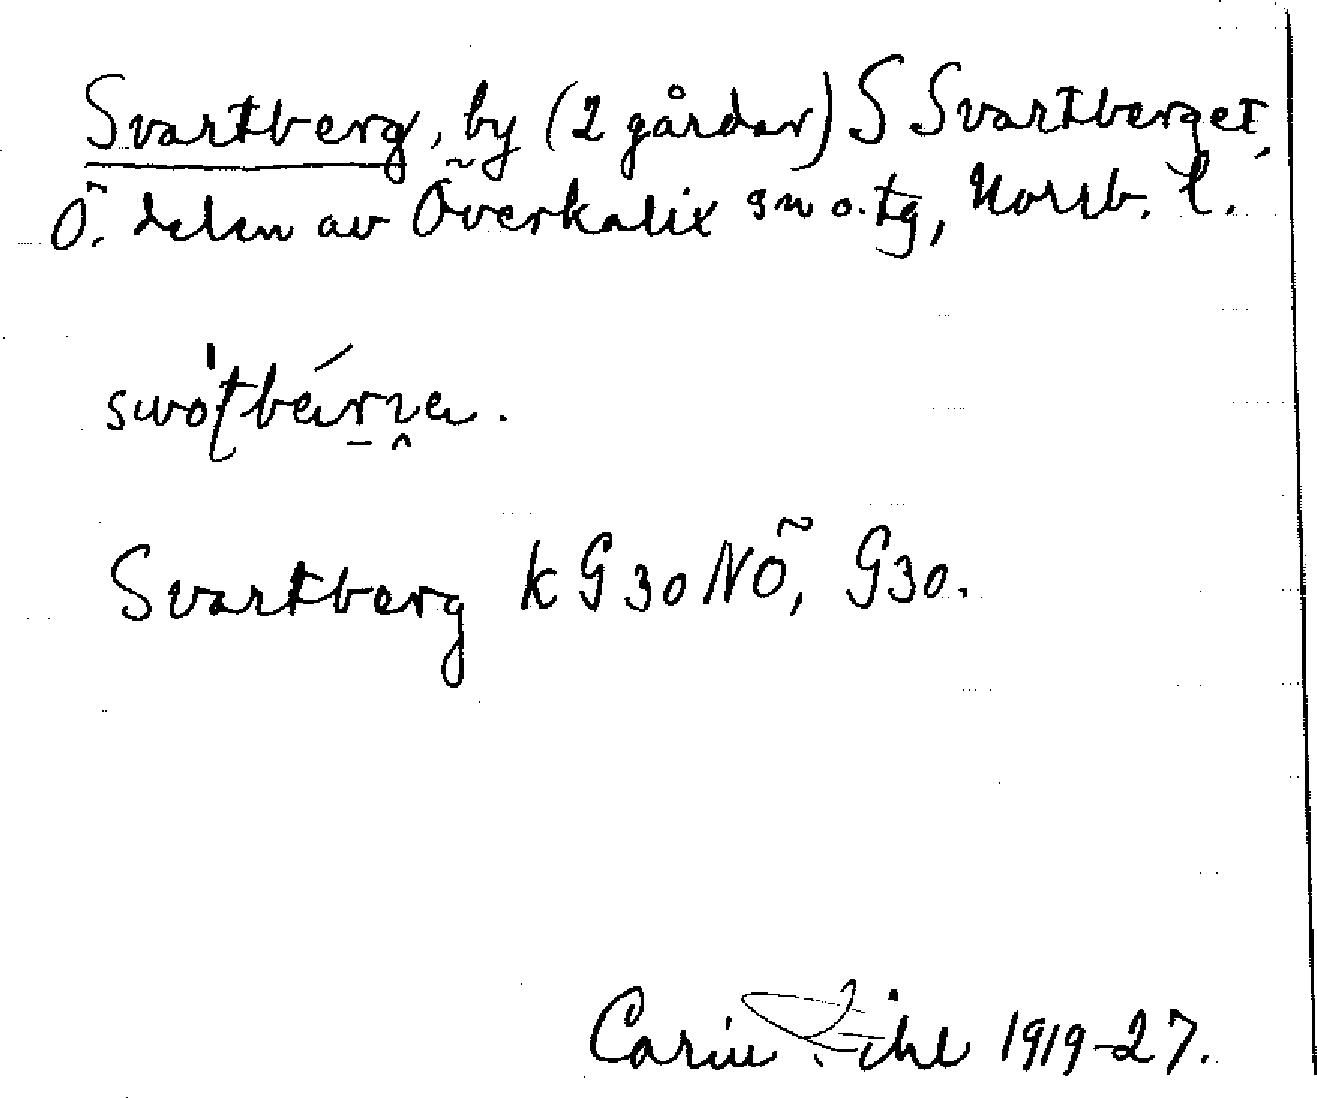 Svartberg, by (2 gårdar) S Svartberget,
Ö. delen av Överkalix sn o. tg, Norrb. l.
Svartberg k G30NÖ, G30.
Carin Pihl 1919-27.